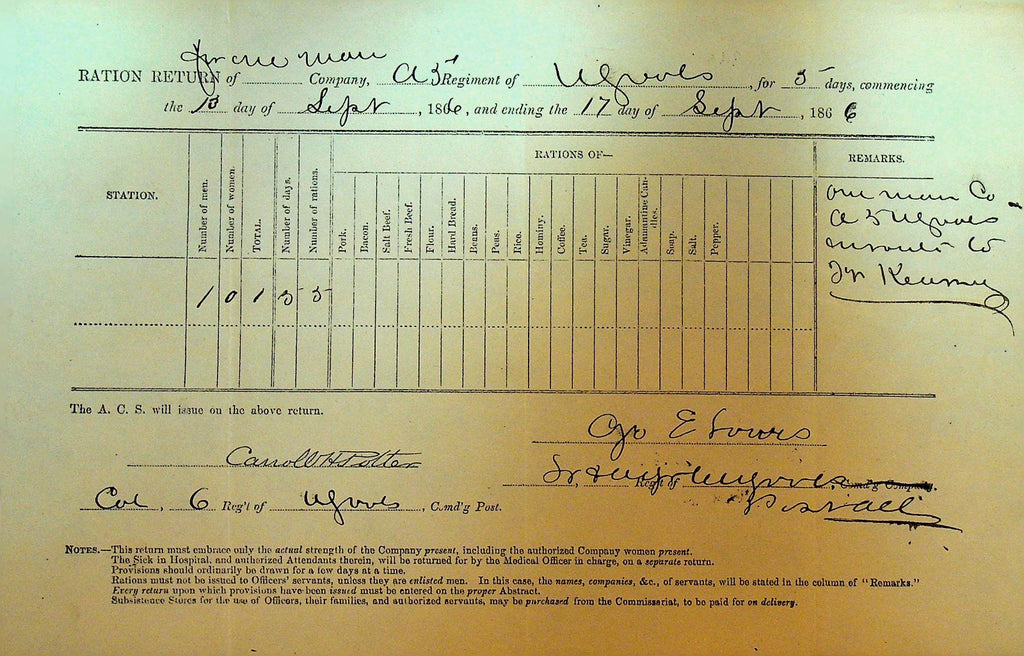 for one man
RATION RETURN of Company, A 5 Regiment of U S Vols, for 5 days, commencing
the 13 day of Sept, 1866, and ending the 17 day of Sept, 1866
STATION. Number of men. Number of women. TOTAL. Number of days. Number of rations. RATIONS OF— REMARKS.
Pork. Bacon. Salt Beef. Fresh Beef. Flour. Hard Bread. Beans. Peas. Rice. Hominy. Coffee. Tea. Sugar. Vinegar. Adamantine Candles. Soap. Salt. Pepper.
one man Co
A 5 U S Vols
en route to
Ft Kearney
1 0 1 5 5
The A. C. S. will issue on the above return.
Geo E
Carroll H Potter
Reg't of Com'd'g Company.
Col, 6 Reg't of U S Vols, Com'd'g Post.
NOTES.—This return must embrace only the actual strength of the Company present, including the authorized Company women present.
The Sick in Hospital, and authorized Attendants therein, will be returned for by the Medical Officer in charge, on a separate return.
Provisions should ordinarily be drawn for a few days at a time.
Rations must not be issued to Officers' servants, unless they are enlisted men. In this case, the names, companies, &c., of servants, will be stated in the column of "Remarks."
Every return upon which provisions have been issued must be entered on the proper Abstract.
Subsistence Stores for the use of Officers, their families, and authorized servants, may be purchased from the Commissariat, to be paid for on delivery.